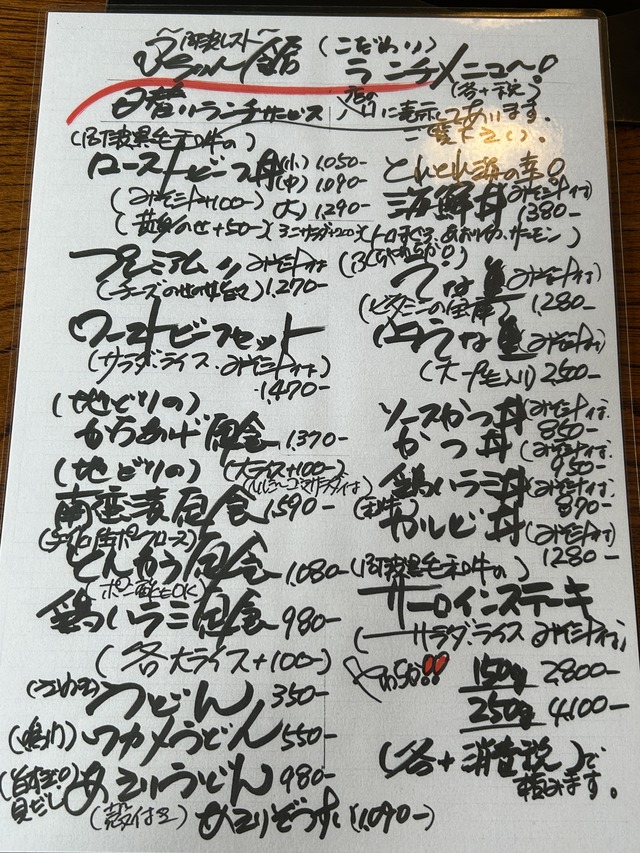 〜阿波レスト〜
(こだわり)
ランチメニュ〜
(各+税)
日替りランチサービス
店の入口に表示してあります。
ご覧下さい。
(阿波黒毛和牛の)
ローストビーフ丼(小)1,050-
(中)1,090-
(大)1,290-
(みそ汁+100-)
(黄身のせ+50-)(ミニサラダ+200)
プレミアム〃みそ汁付
(チーズのせ)1,270-
ローストビーフセット
(サラダ、ライス、みそ汁付)
1,470-
(地どりの)
からあげ定食 1,370-
(地どりの)
(大ライス+100-)
南蛮漬定食 1,590-
とんかつ定食 1,080-
(ポン酢もOK)
鶏ハラミ定食 980-
(各大ライス+100-)
うどん 350-
(鳴門)ワカメうどん 550-
貝だし
あさりうどん 980-
(殻付き)
あさりぞうすい(1,090-)
海の幸
海鮮丼(みそ汁付)
1,380-
(トロまぐろ、あおりいか、サーモン)
うな重 みそ汁付
(ビタミンの宝庫) 1,280-
うな重 みそ汁付
2,500-
ソースかつ丼(みそ汁付)
850-
かつ丼(みそ汁付)
950-
鶏ハラミ丼(みそ汁付)
890-
カルビ丼(みそ汁付)
1,280-
(阿波黒毛和牛の)
サーロインステーキ
(サラダ、ライス、みそ汁付)
150g 2,800-
250g 4,100-
(各+消費税)で
頼みます。